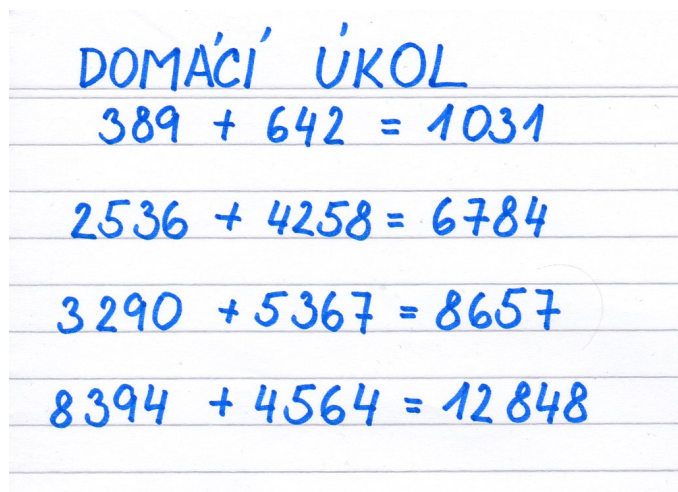 DOMÁCÍ ÚKOL
389 + 642 = 1031
2536 + 4258 = 6784
3290 + 5367 = 8657
8394 + 4564 = 12848